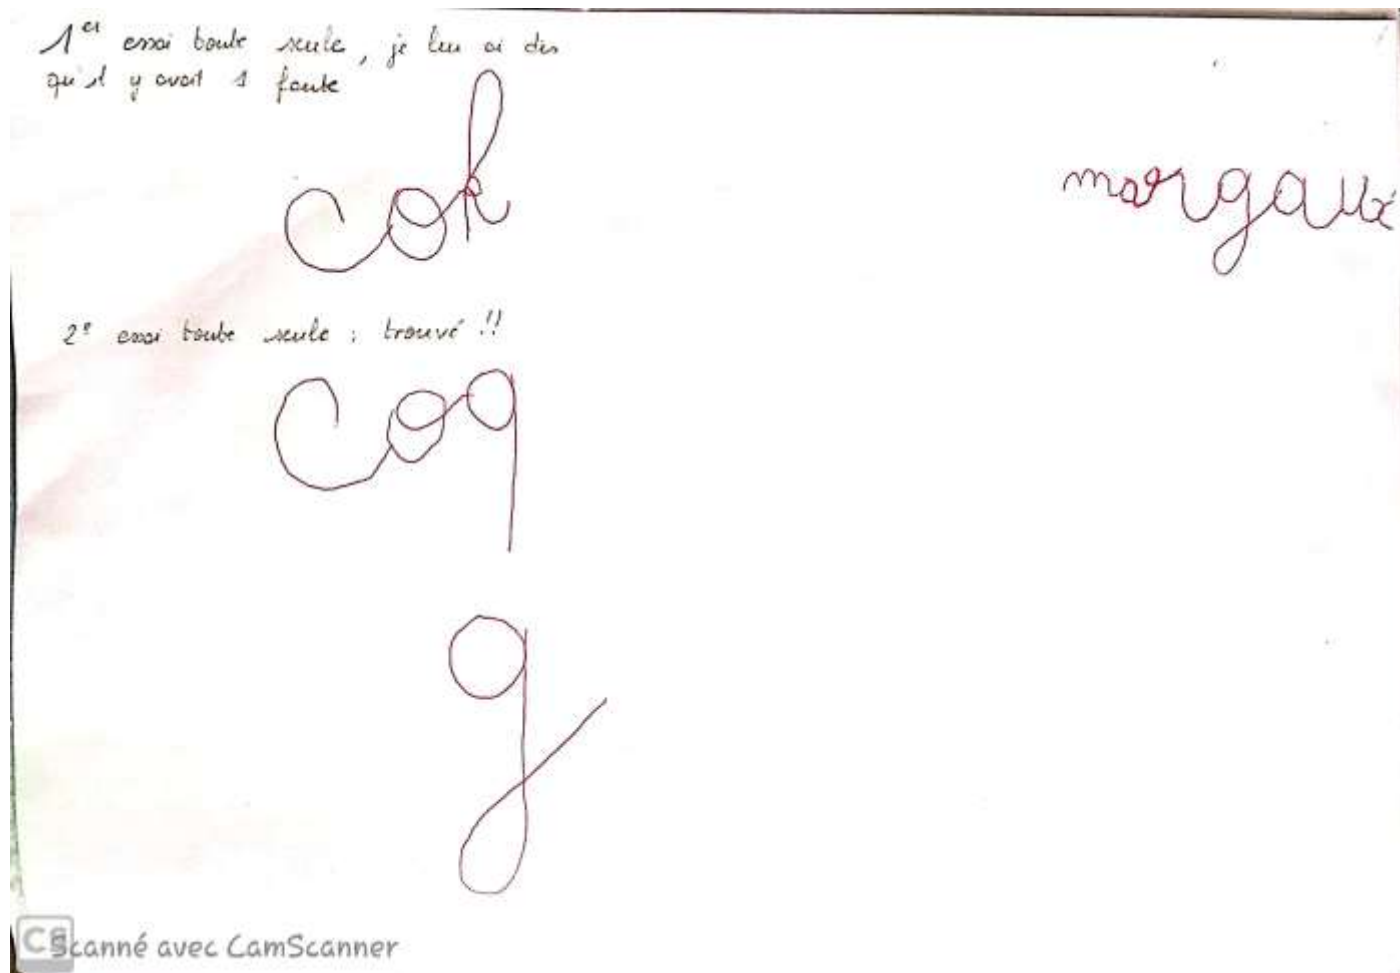 1er essai toute seule, je lui ai dis
qu'il y avait 1 faute
cok
margaux
2e essai toute seule : trouvé !!
coq
g
CS Scanné avec CamScanner